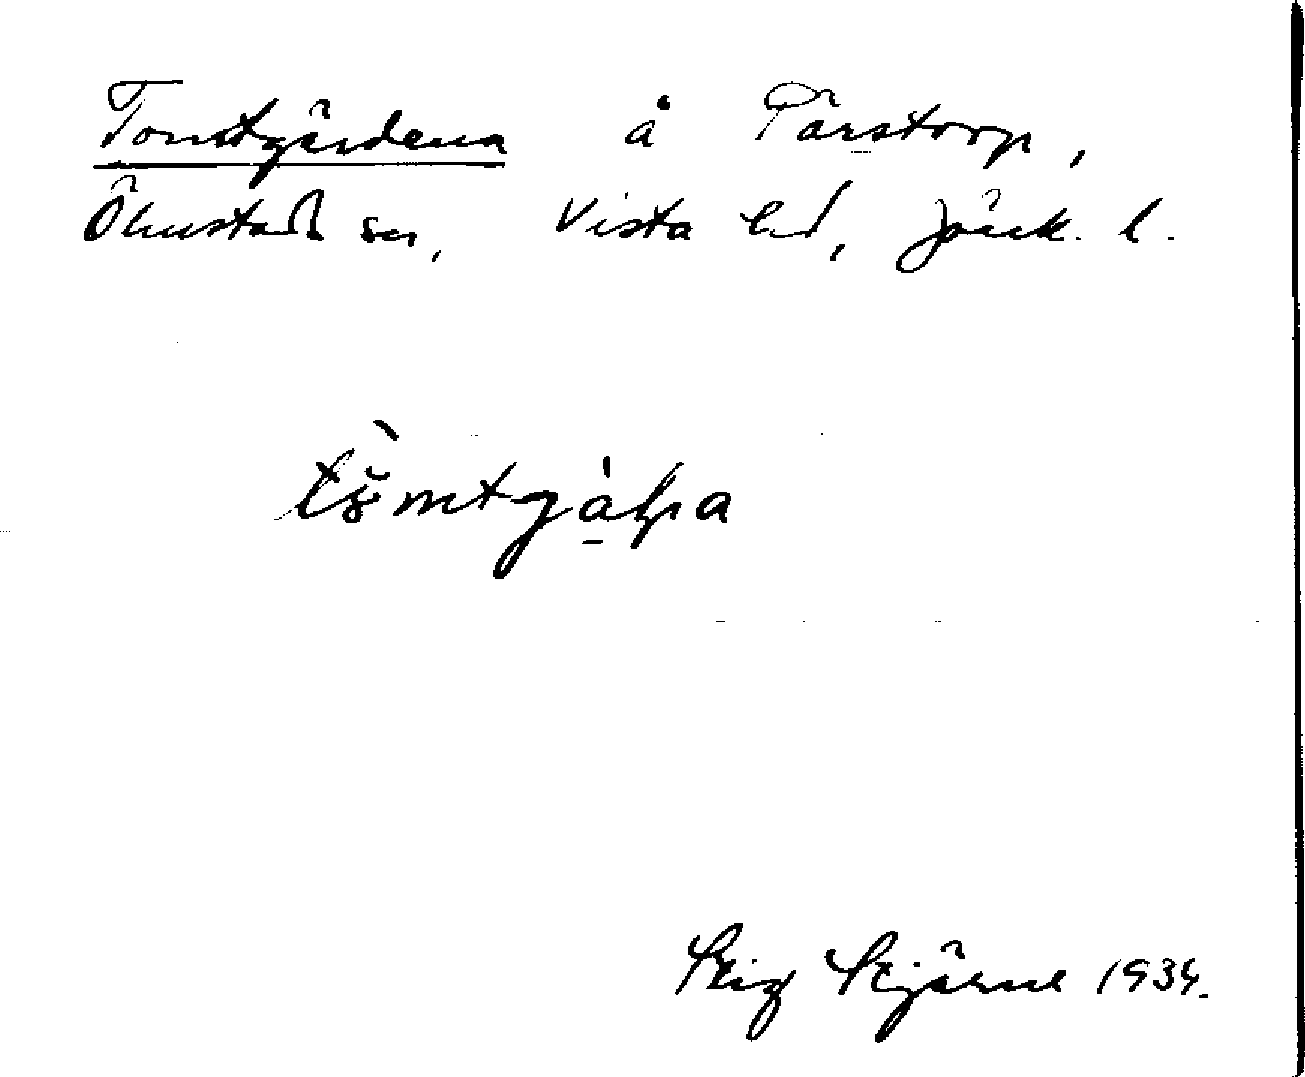 Tomtgärdena å Pärstorp,
Ölmstad sn, Vista hd, Jönk. l.
Stig Stjärne 1934.